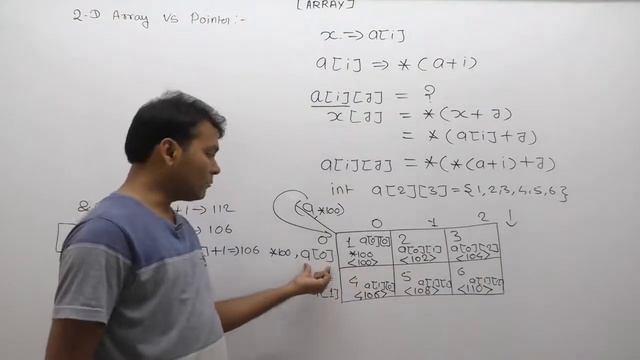 [ARRAY]
2-D Array VS Pointer:-
x => a[i]
a[i] => *(a+i)
a[i][j] = ?
x[j] = *(x+j)
= *(a[i]+j)
a[i][j] = *(*(a+i)+j)
int a[2][3]={1,2,3,4,5,6}
+1 → 112
→ 106
]+1 => 106
(a *100)
0 1 2
0
*100, a[0]
1 a[0][0] *100 <100>
2 a[0][1] <102>
3 a[0][2] <104>
[1]
4 a[1][0] <106>
5 a[1][1] <108>
6 <110>